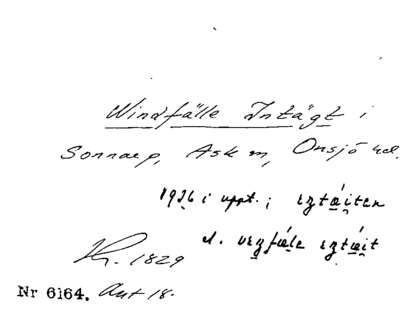 Windfälle Intägt i
Sonnarp, Ask sn, Onsjö hd.
1926 i uppt.; eztáiten
el. vezfæle eztæit
1829
Nr 6164. Ant 18.